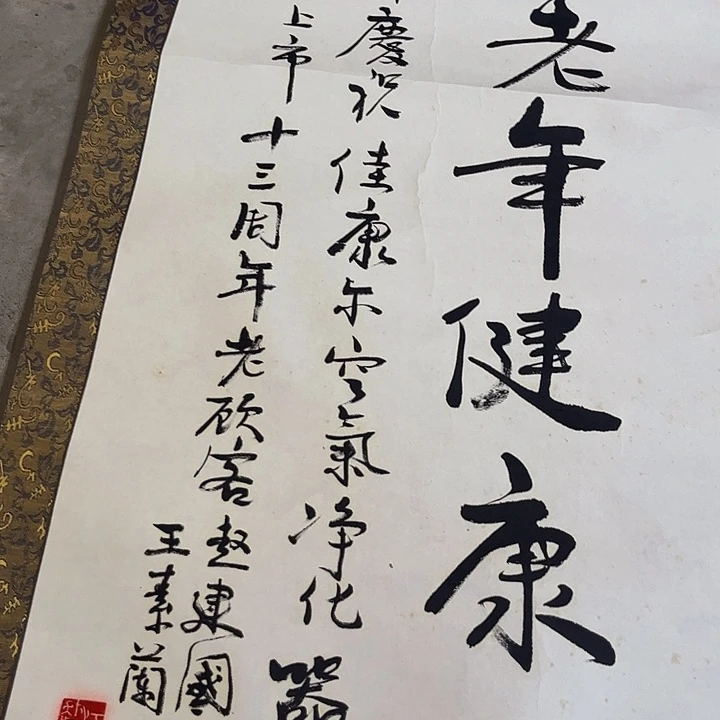 老年健康
慶祝佳康尔空氣净化器
上市十三周年老顾客赵建國
王素蘭